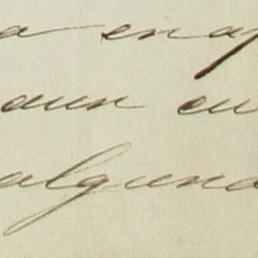 a enap
aun en
alguna